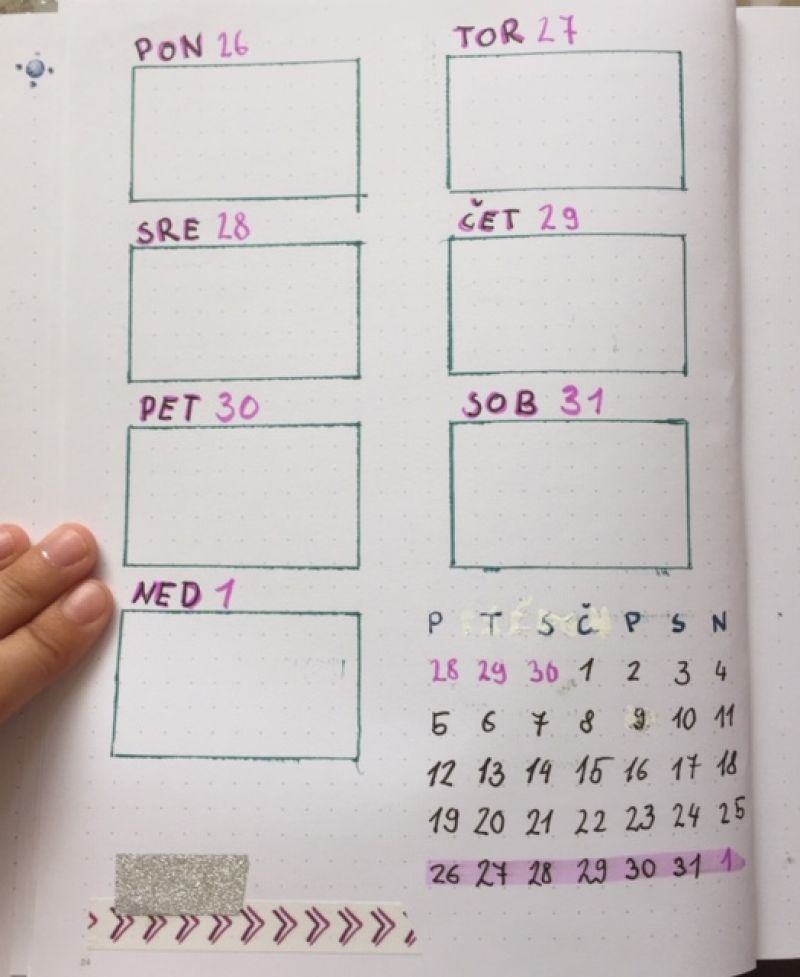 PON 26
TOR 27
SRE 28
ČET 29
PET 30
SOB 31
NED 1
P T S Č P S N
28 29 30 1 2 3 4
5 6 7 8 9 10 11
12 13 14 15 16 17 18
19 20 21 22 23 24 25
26 27 28 29 30 31 1